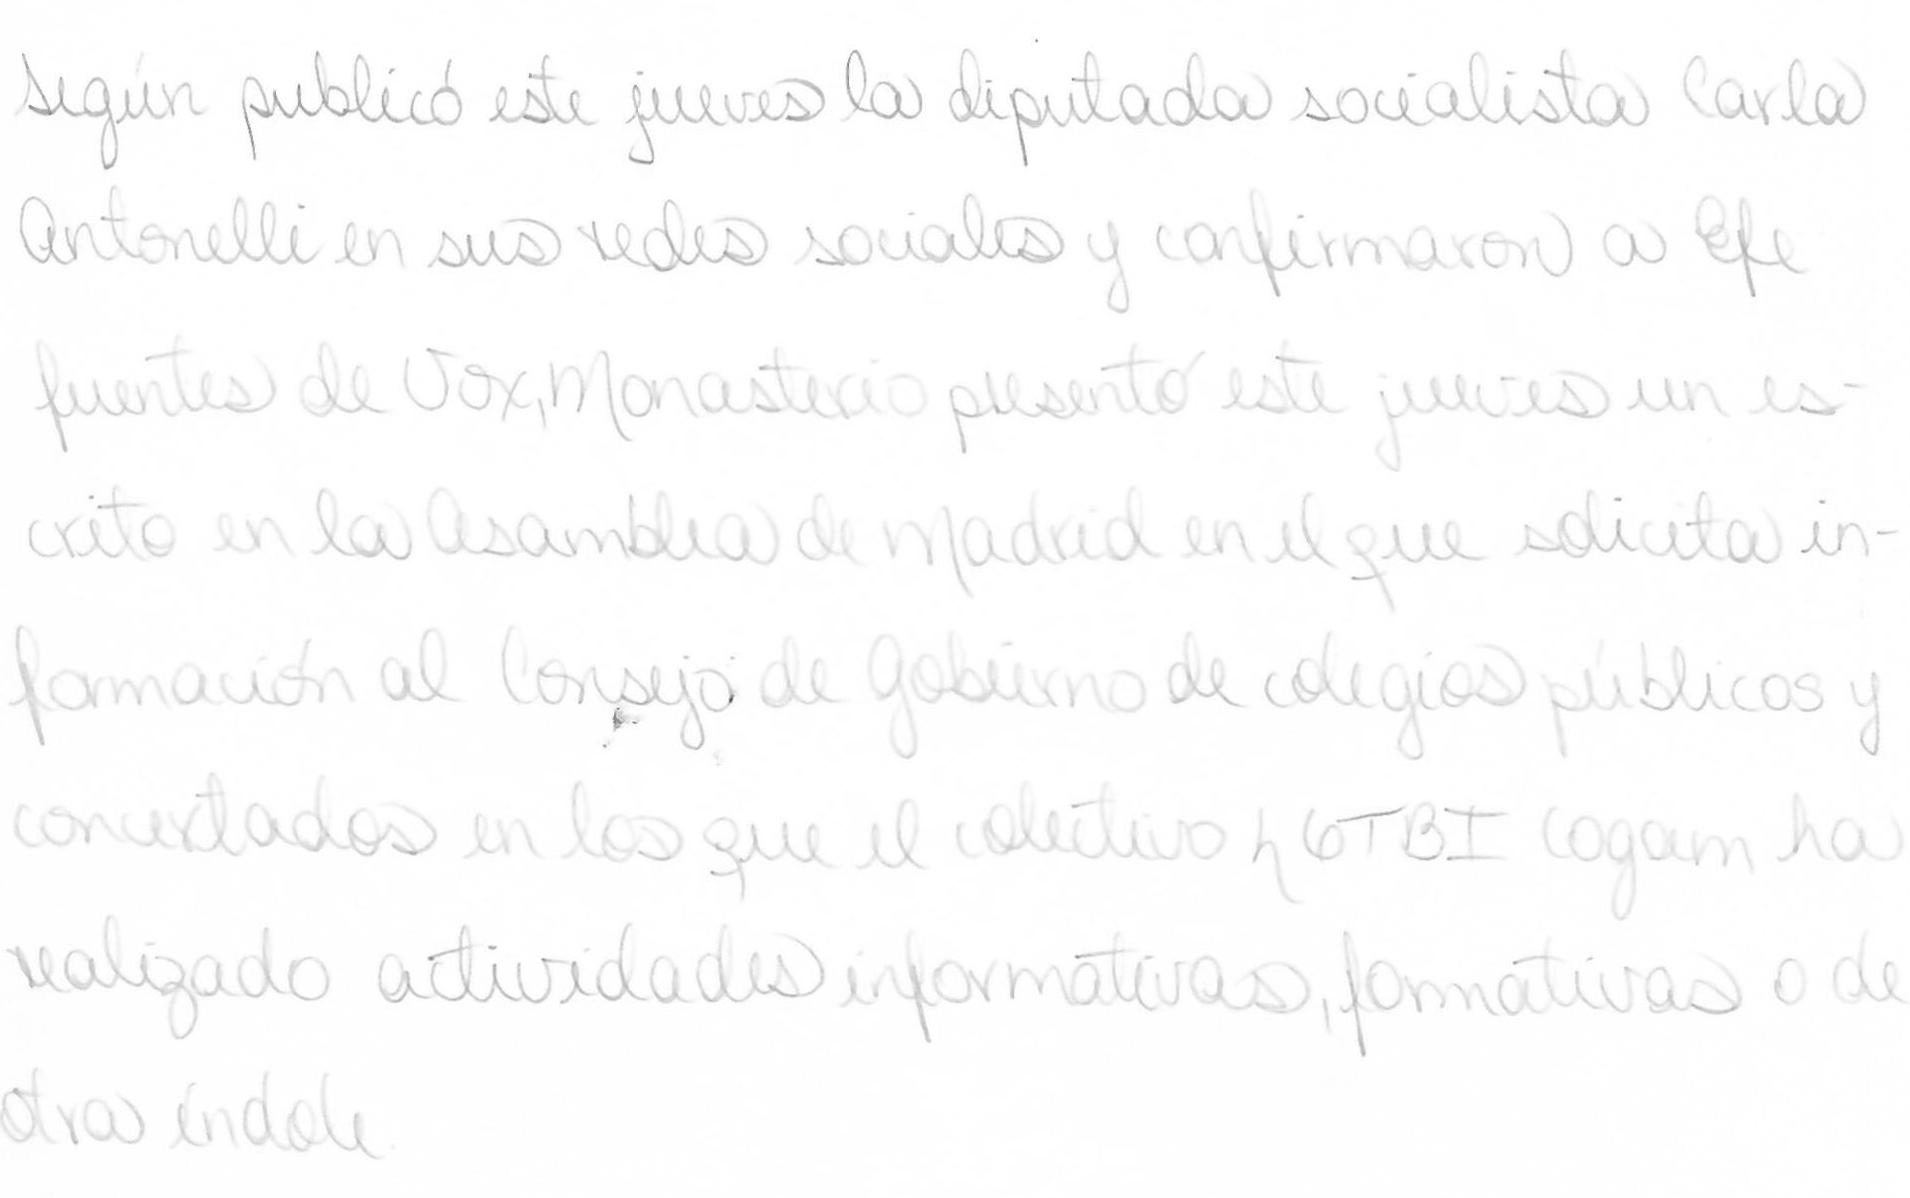 Según publicó este jueves la diputada socialista Carla
Antonelli en sus redes sociales y confirmaron a Efe
fuentes de Vox, Monasterio presentó este jueves un es-
crito en la Asamblea de Madrid en el que solicita in-
formación al Consejo de Gobierno de colegios públicos y
concertados en los que el colectivo LGTBI Cogam ha
realizado actividades informativas, formativas o de
otra índole